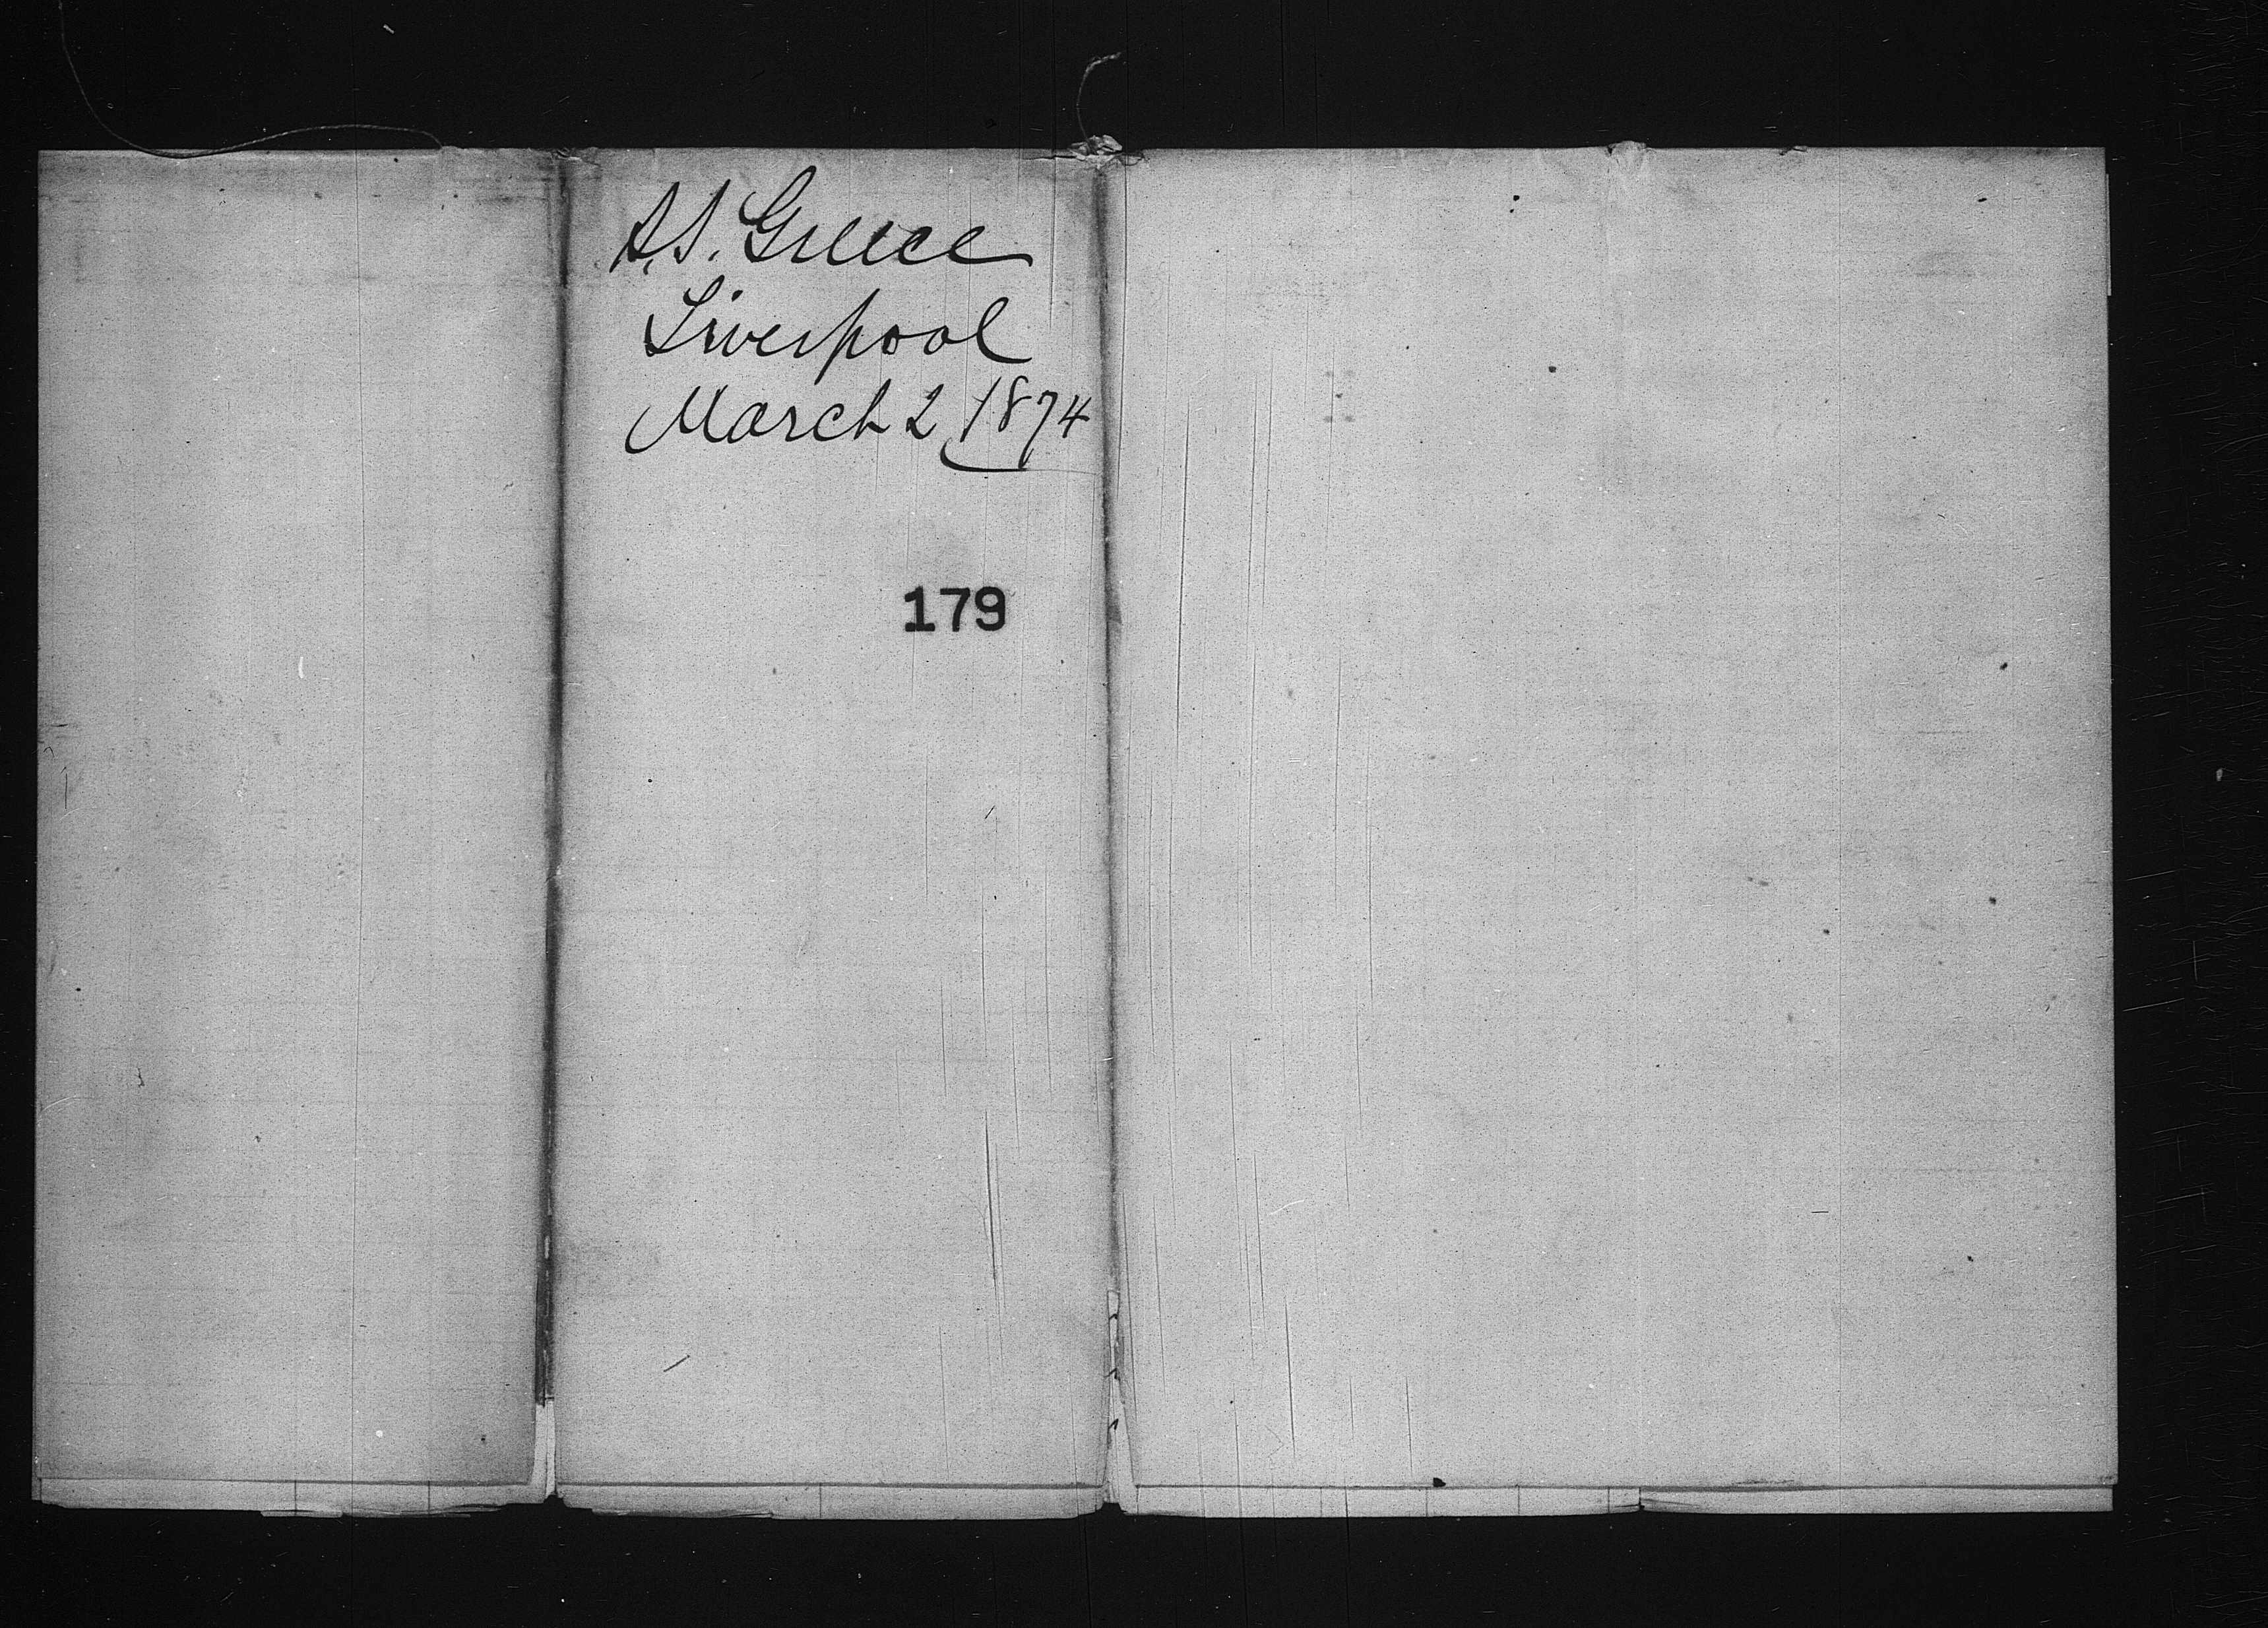 S.S. Greece
Liverpool
March 2 1874
179